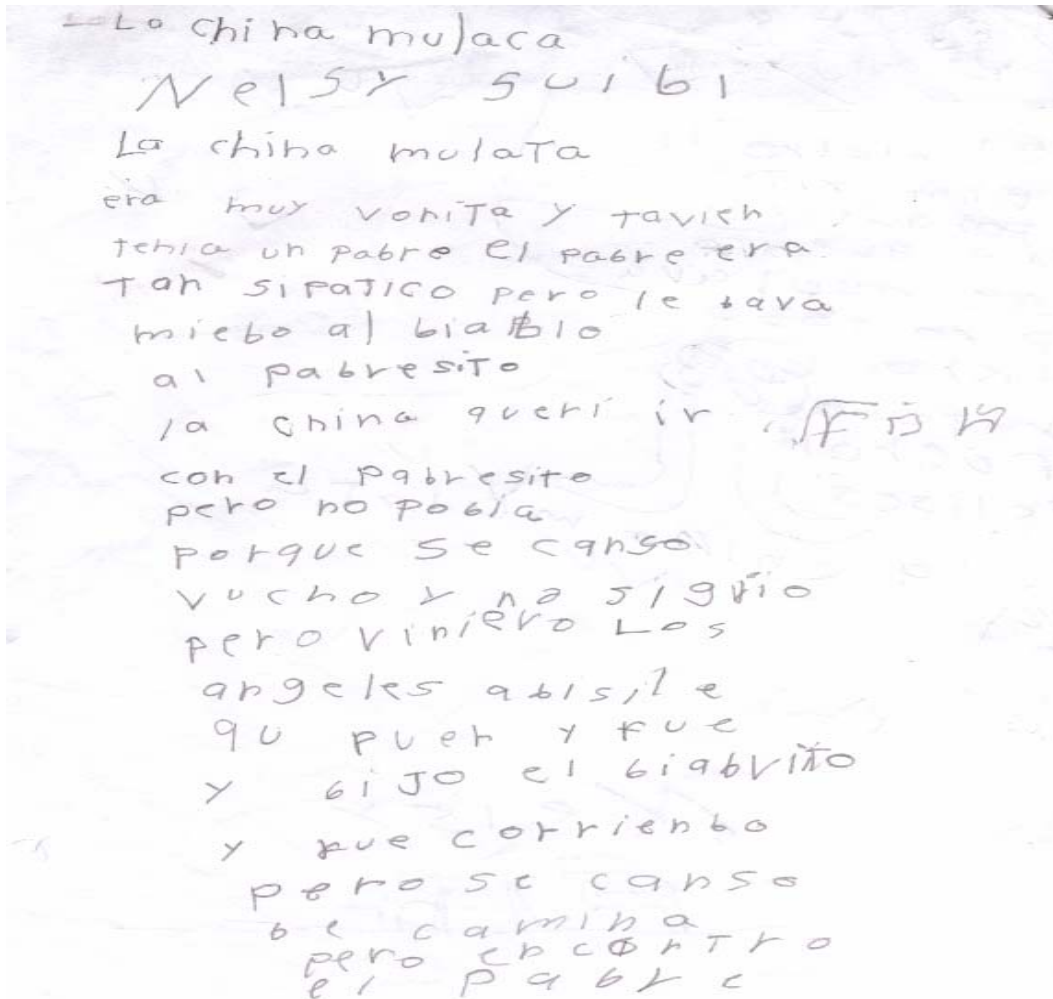 La china mulaca
Nelsy suibi
La china mulata
era muy vonita y tavien
tenia un pabre el pabre era
tan sipatico pero le bava
miebo al biablo
al pabresito
la china queri ir
con el pabresito
pero no pobia
porque se canso
vucho y no siguio
pero viniero Los
angeles abisile
qu puen y fue
y bijo el biabrito
y fue corrienbo
pero se canso
be camina
pero encontro
el pabre